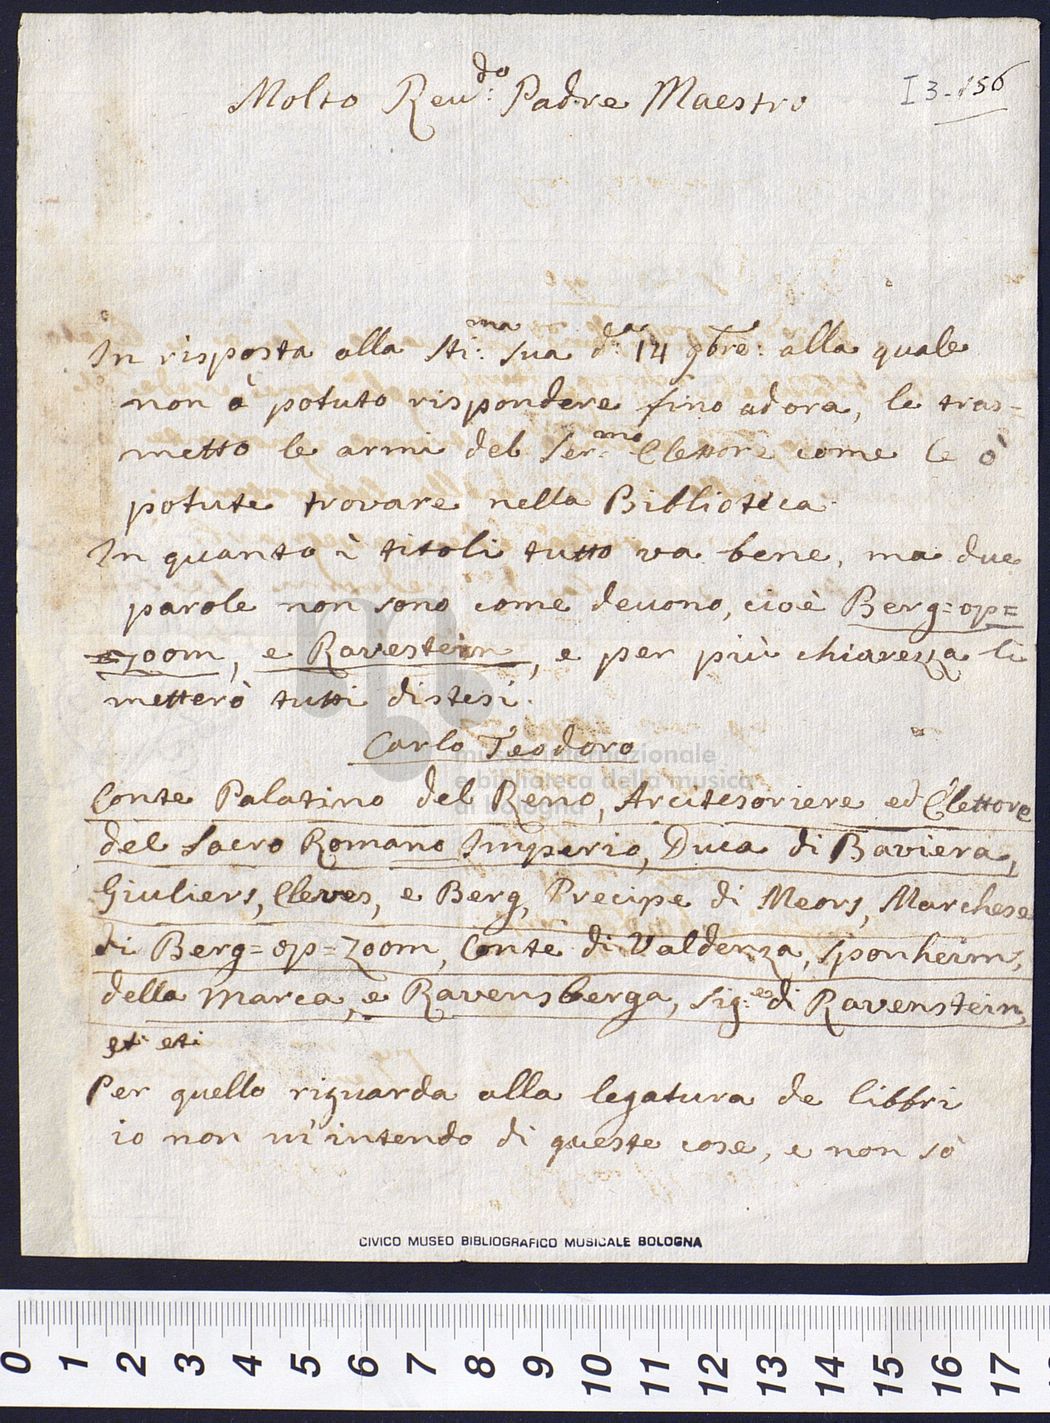 Molto Reu.do Padre Maestro
I 3-156
In risposta alla sti.ma sua d.a 14 9bre: alla quale
non ò potuto rispondere fino adora, le tras=
metto le armi del Ser.mo Elettore come le ò
potute trovare nella Biblioteca.
In quanto i titoli tutto va bene, ma due
parole non sono come deuono, cioè Berg=op=
=zoom, e Ravestein, e per più chiarezza li
metterò tutti distesi.
Carlo Teodoro
Conte Palatino del Reno, Arcitesoriere ed Elettore
del Sacro Romano Imperio, Duca di Baviera,
Giuliers, Cleves, e Berg, Precipe di Meors, Marchese
di Berg=op=Zoom, Conte di Valdenza, Sponheim,
della Marca, e Ravensberga, Sig.e di Ravenstein,
et: et:
Per quello riguarda alla legatura de libbri
io non m'intendo di queste cose, e non sò
museo internazionale
e biblioteca della musica
di bologna
CIVICO MUSEO BIBLIOGRAFICO MUSICALE BOLOGNA
0 1 2 3 4 5 6 7 8 9 10 11 12 13 14 15 16 17